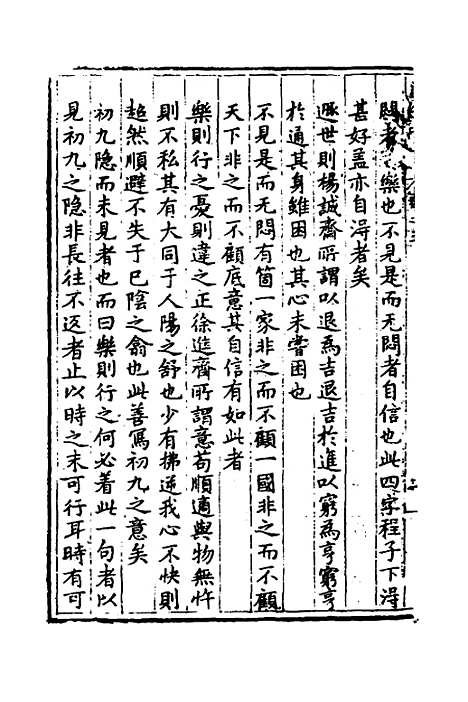 悶者樂也不見是而无悶者自信也此四字程子下得
甚好盖亦自得者矣
遯世則楊誠齋所謂以退爲吉退吉於進以窮爲亨窮亨
於通其身雖困也其心未嘗困也
不見是而无悶有箇一家非之而不顧一國非之而不顧
天下非之而不顧底意其自信有如此者
樂則行之憂則違之正徐進齋所謂意苟順適與物無忤
則不私其有大同于人陽之舒也少有拂逆我心不快則
超然順避不失于已陰之翕也此善寫初九之意矣
初九隐而未見者也而曰樂則行之何必著此一句者以
見初九之隐非長往不返者止以時之未可行耳時有可